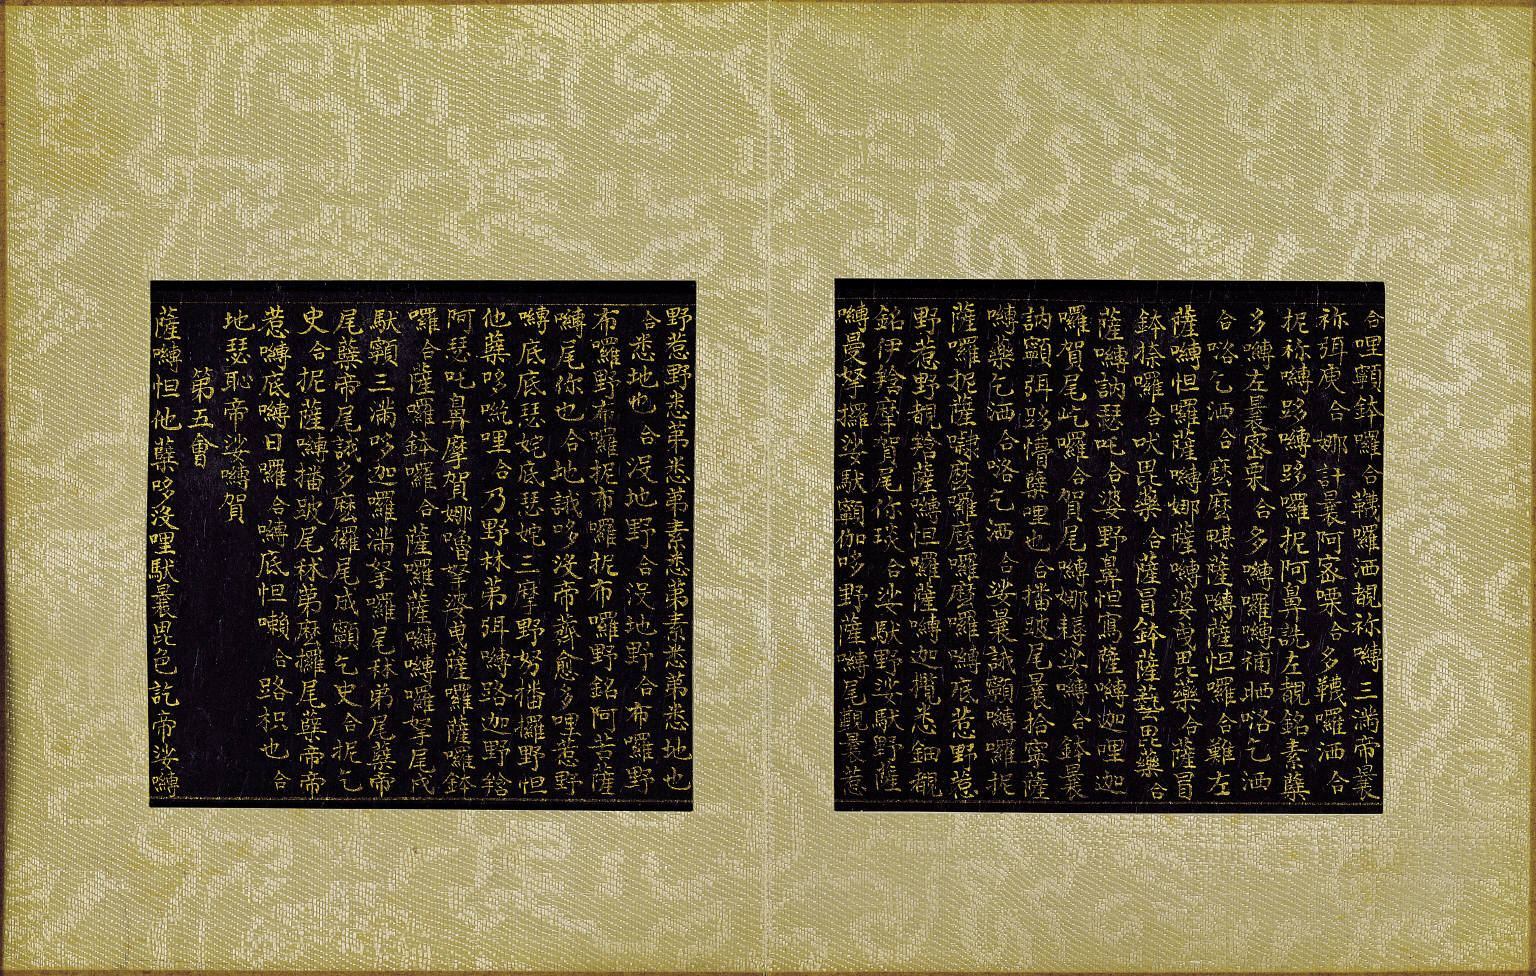 合哩顙鉢囉合韈囉洒覩祢嚩三滿帝曩
祢弭庾合娜計曩阿密㗚合多韈囉洒合
抳祢嚩跢嚩跢囉抳阿鼻詵左覩銘素蘖
多嚩左曩密栗合多嚩囉嚩補晒咯乞洒
合咯乞洒合麼麼㗚薩嚩薩怛囉合難左
薩嚩怛囉薩嚩娜薩嚩婆曳毘藥合薩冒
鉢捺囉合吠毘藥合薩冒鉢薩藝毘藥合
薩嚩訥瑟吒合婆野鼻怛寫薩嚩迦哩迦
囉賀尾屹囉合賀尾嚩娜耨娑嚩合鉢曩
訥顙弭跢懵蘖哩也合播跛尾曩捨寧薩
嚩藥乞洒合咯乞洒合娑曩誐顙嚩囉抳
薩囉抳薩隸麼囉麼囉麼囉嚩底惹野惹
野惹野覩㛿薩嚩怛囉薩嚩迦攬悉鈿覩
銘伊㛿摩賀尾你琰合娑馱野娑馱野薩
嚩曼拏攞娑馱顙伽哆野薩嚩尾覲曩惹
野惹野悉第悉第素悉第素悉第悉地也
合悉地也合沒地野合沒地野合布囉野
布囉野布囉抳布囉抳布囉野銘阿苦薩
嚩尾你也合地誐哆沒帝孽愈多哩惹野
嚩底底瑟姹底瑟姹三摩野努播攞野怛
他蘖哆㘑哩合乃野秫第弭嚩路迦野㛿
阿瑟吒鼻摩賀娜嚕拏婆曳薩囉薩囉鉢
囉合薩囉鉢囉合薩囉薩嚩嚩囉拏尾戍
馱顙三滿哆迦囉滿拏囉尾秫弟尾蘖帝
尾蘖帝尾誐多麼攞尾成顙乞史合抳乞
史合抳薩嚩播跛尾秫第麼攞尾蘖帝帝
惹嚩底嚩日囉合嚩底怛嚟合路枳也合
地瑟恥帝娑嚩賀
第五會
薩嚩怛他蘖哆沒哩馱曩毘色訖帝娑嚩